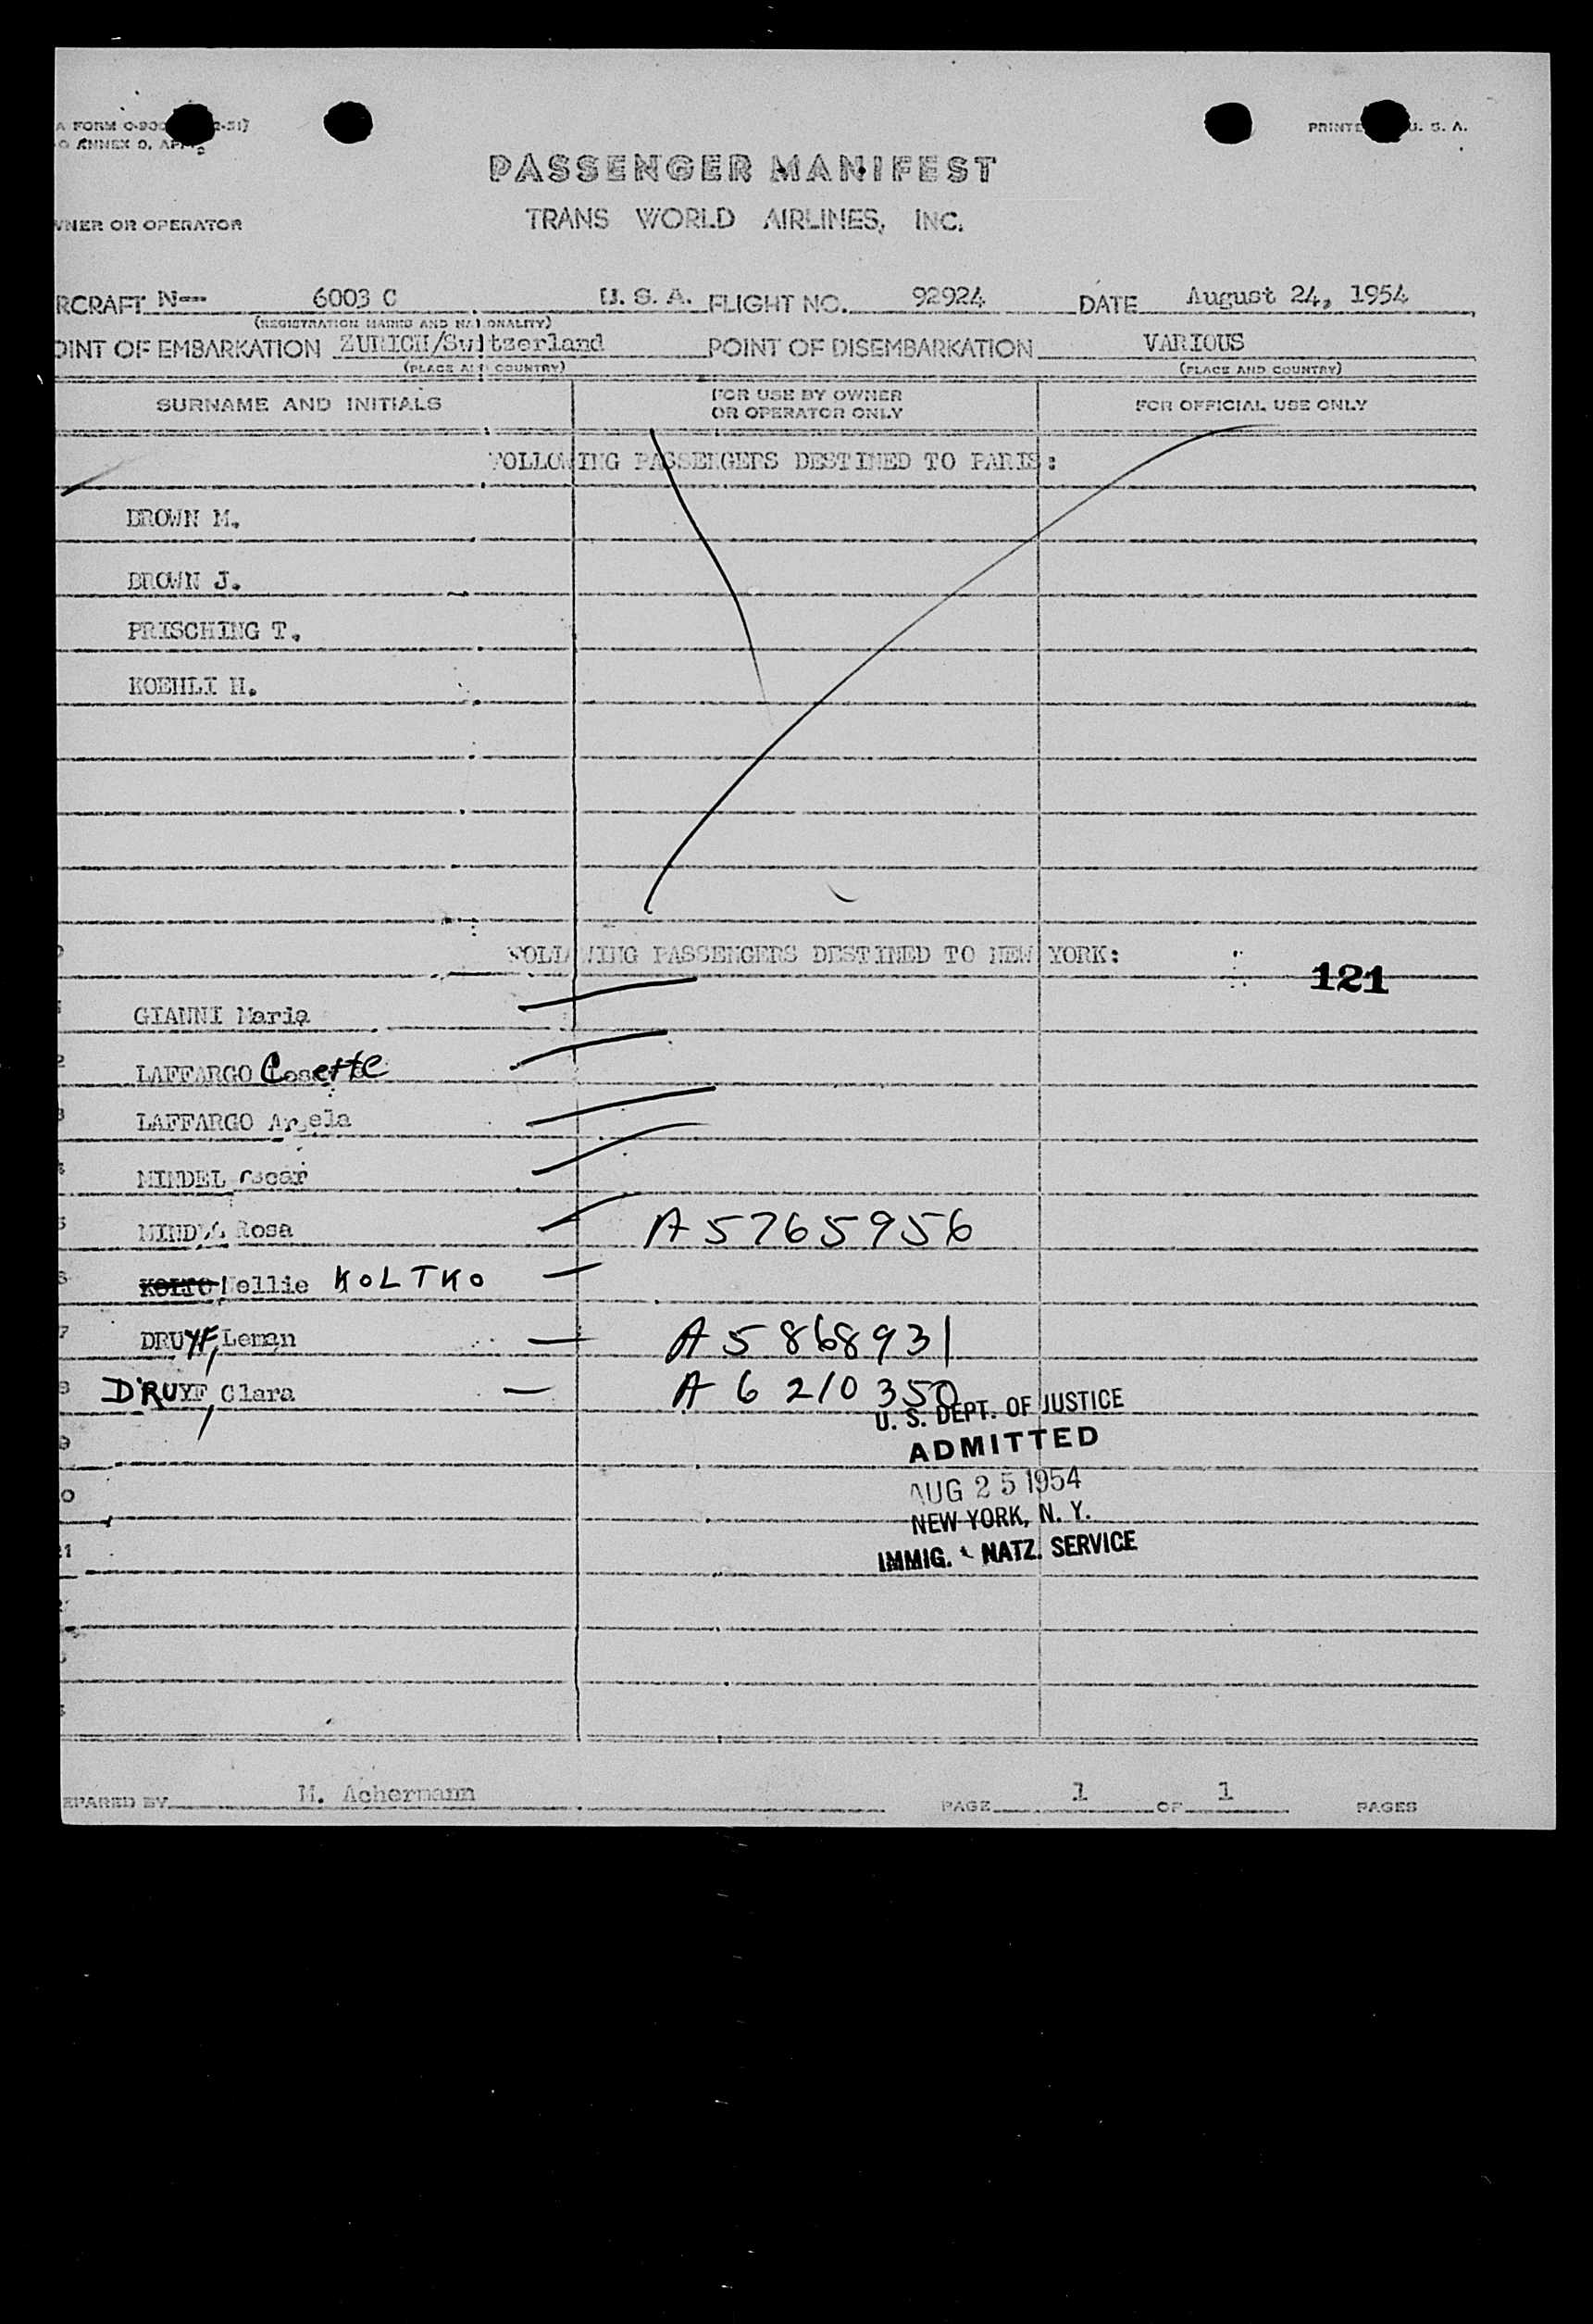 A FORM C-900 2-51)
O ANNEX D, APP. 2
PRINTE U. S. A.
PASSENGER MANIFEST
WNER OR OPERATOR
TRANS WORLD AIRLINES, INC.
RCRAFT N--- 6003 C U. S. A. FLIGHT NO. 92924 DATE August 24, 1954
(REGISTRATION MARKS AND NATIONALITY)
OINT OF EMBARKATION ZURICH/Switzerland POINT OF DISEMBARKATION VARIOUS
(PLACE AND COUNTRY) (PLACE AND COUNTRY)
SURNAME AND INITIALS FOR USE BY OWNER OR OPERATOR ONLY FOR OFFICIAL USE ONLY
FOLLOWING PASSENGERS DESTINED TO PARIS:
BROWN M.
BROWN J.
PRISCHING T.
KOEHLI H.
FOLLOWING PASSENGERS DESTINED TO NEW YORK:
121
GIANNI Maria
2 LAFFARGO Cosette
3 LAFFARGO Angela
MINDEL Oscar
5 MINDEL Rosa A5765956
6 KOLTO Nellie KOLTKO
7 DRUYF, Leman A5868931
8 D'RUYF, Clara A6210350
U. S. DEPT. OF JUSTICE
9
ADMITTED
0
AUG 25 1954
NEW YORK, N. Y.
21
IMMIG. & NATZ. SERVICE
EPARED BY M. Achermann PAGE 1 OF 1 PAGES